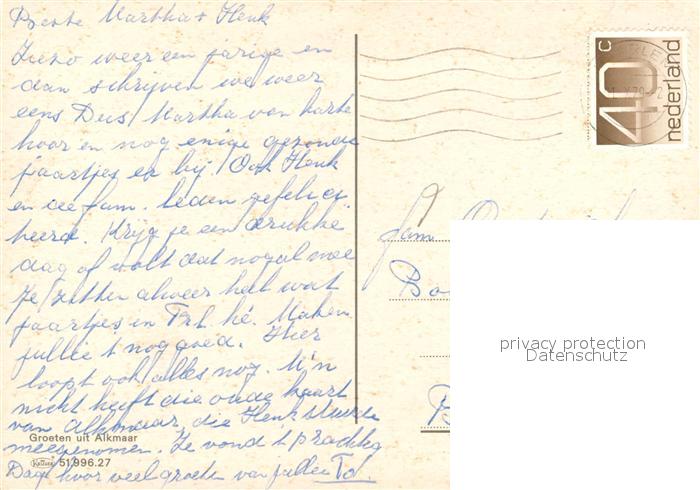 Beste Martha + Henk
Ziezo weer een jarige en
dan schrijven we weer
eens Dus Martha van harte
hoor en nog enige gezonde
jaartjes er bij. Ook Henk
en de fam. leden gefelici
teerd. Krijg je een drukke
dag of valt dat nogal mee
Je zitten alweer heel wat
jaartjes in Trl. hé. Maken
jullie 't nog goed. Hier
loopt ook alles nog. M'n
nicht heeft die oude kaart
van Alkmaar, die Henk stuurde
meegenomen. Ze vond 't prachtig
Dag hoor veel groeten van jullie
Groeten uit Alkmaar
51.996.27
40 c
nederland
Fam
privacy protection
Datenschutz